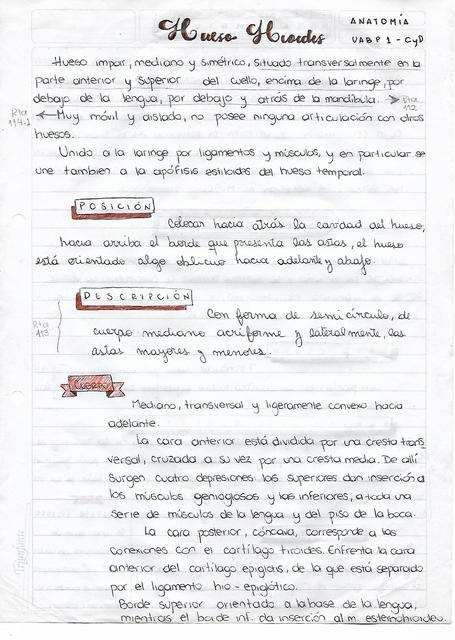 Hueso Hioides
ANATOMÍA
UABP 1 - CyD
Hueso impar, mediano y simétrico, situado transversalmente en la
parte anterior y superior del cuello, encima de la laringe, por
debajo de la lengua, por debajo y atrás de la mandíbula. Rta 112
Rta 114.1 Muy móvil y aislado, no posee ninguna articulación con otros
huesos.
Unido a la laringe por ligamentos y músculos, y en particular se
une tambien a la apófisis estiloides del hueso temporal.
POSICIÓN
Colocar hacia atrás la cavidad del hueso,
hacia arriba el borde que presenta las astas, el hueso
está orientado algo oblicuo hacia adelante y abajo.
DESCRIPCIÓN
Con forma de semicírculo, de
Rta 113 cuerpo mediano acriforme y lateralmente, las
astas mayores y menores.
CUERPO
Mediano, transversal y ligeramente convexo hacia
adelante.
La cara anterior está dividida por una cresta trans
versal, cruzada a su vez por una cresta media. De allí
surgen cuatro depresiones: las superiores dan inserción a
los músculos geniogiosos y las inferiores, a toda una
serie de músculos de la lengua y del piso de la boca.
La cara posterior, cóncava, corresponde a las
conexiones con el cartílago tiroides. Enfrenta la cara
anterior del cartílago epiglotis, de la que está separado
por el ligamento hio-epiglótico.
Borde superior orientado a la base de la lengua,
mientras el borde inf. da inserción al m. esternohioideo.
Triunfante